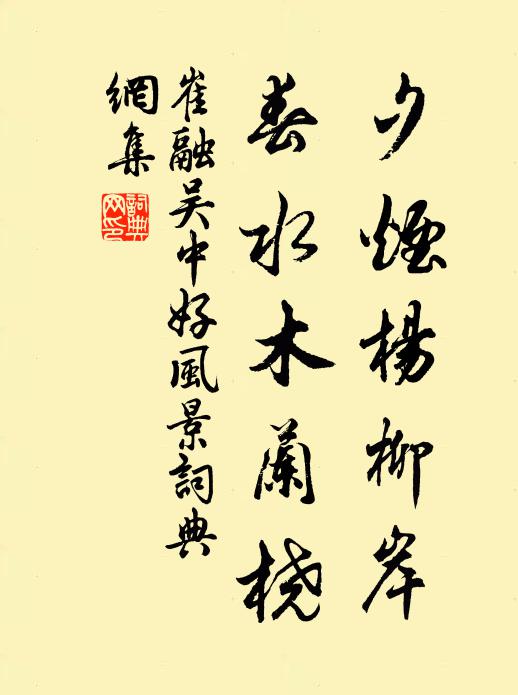 夕煙楊柳岸
春水木蘭橈
崔融吴中好風景詞典
網集
詞典
网印